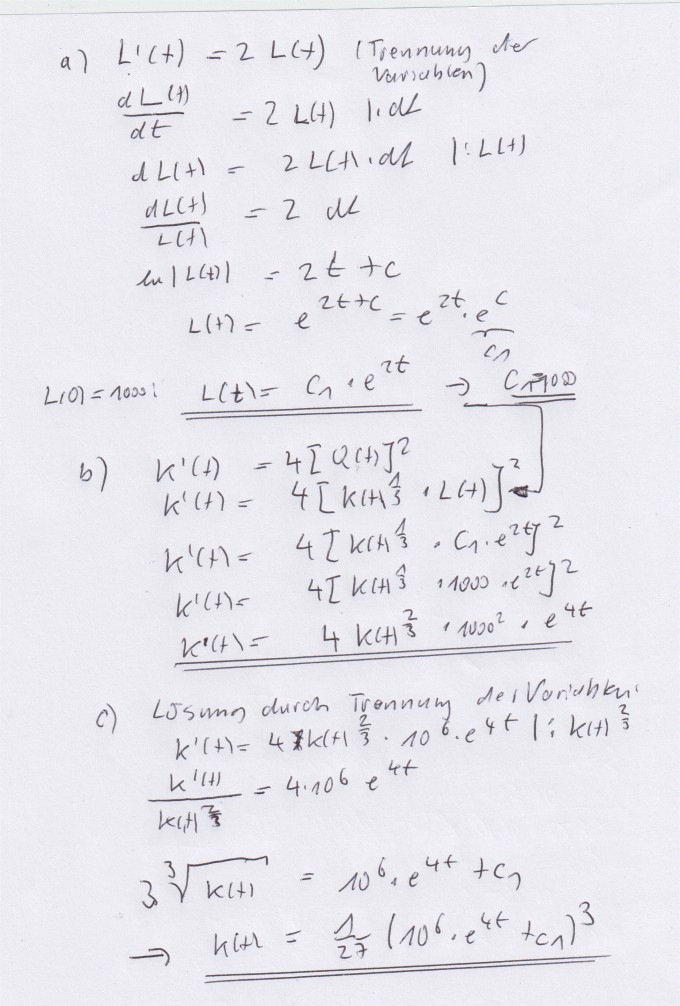 a) L'(t) = 2 L(t) (Trennung der Variablen)
dL(t)/dt = 2 L(t) |·dt
dL(t) = 2 L(t)·dt |:L(t)
dL(t)/L(t) = 2 dt
ln|L(t)| = 2t + c
L(t) = e^(2t+c) = e^(2t)·e^c
c₁
L(0)=1000: L(t) = C₁·e^(2t) → C₁=1000
b) K'(t) = 4[Q(t)]²
K'(t) = 4[K(t)^(1/3)·L(t)]²
K'(t) = 4[K(t)^(1/3)·C₁·e^(2t)]²
K'(t) = 4[K(t)^(1/3)·1000·e^(2t)]²
K'(t) = 4 K(t)^(2/3)·1000²·e^(4t)
c) Lösung durch Trennung der Variablen:
K'(t) = 4 K(t)^(2/3)·10⁶·e^(4t) |:K(t)^(2/3)
K'(t)/K(t)^(2/3) = 4·10⁶ e^(4t)
3 ∛K(t) = 10⁶·e^(4t) + c₁
→ K(t) = 1/27 (10⁶·e^(4t) + c₁)³